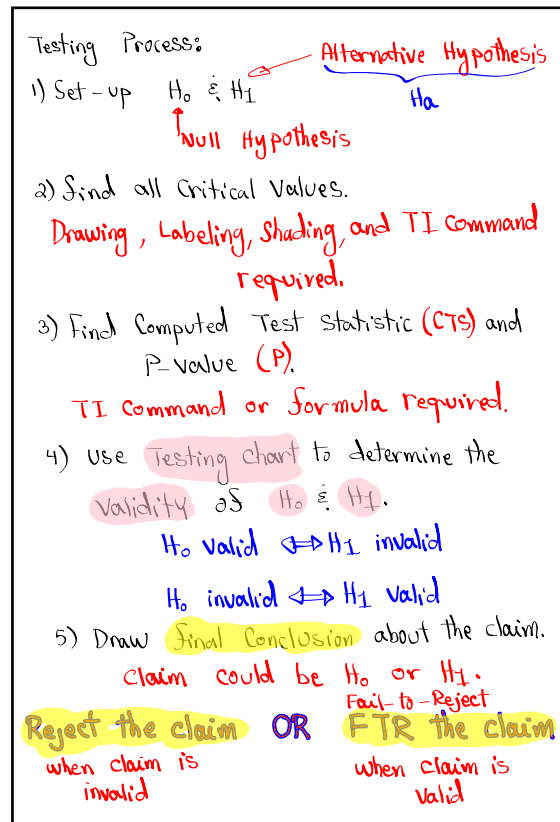 Testing Process:
Alternative Hypothesis
1) Set-up H₀ & H1
Ha
Null Hypothesis
2) find all Critical Values.
Drawing, Labeling, Shading, and TI Command
required.
3) Find Computed Test Statistic (CTS) and
P-Value (P).
TI Command or formula required.
4) Use Testing chart to determine the
Validity of H₀ & H1.
H₀ valid ⇔ H1 invalid
H₀ invalid ⇔ H1 valid
5) Draw final Conclusion about the claim.
Claim could be H₀ or H1.
Fail-to-Reject
Reject the claim OR FTR the claim
when claim is
invalid
when claim is
valid